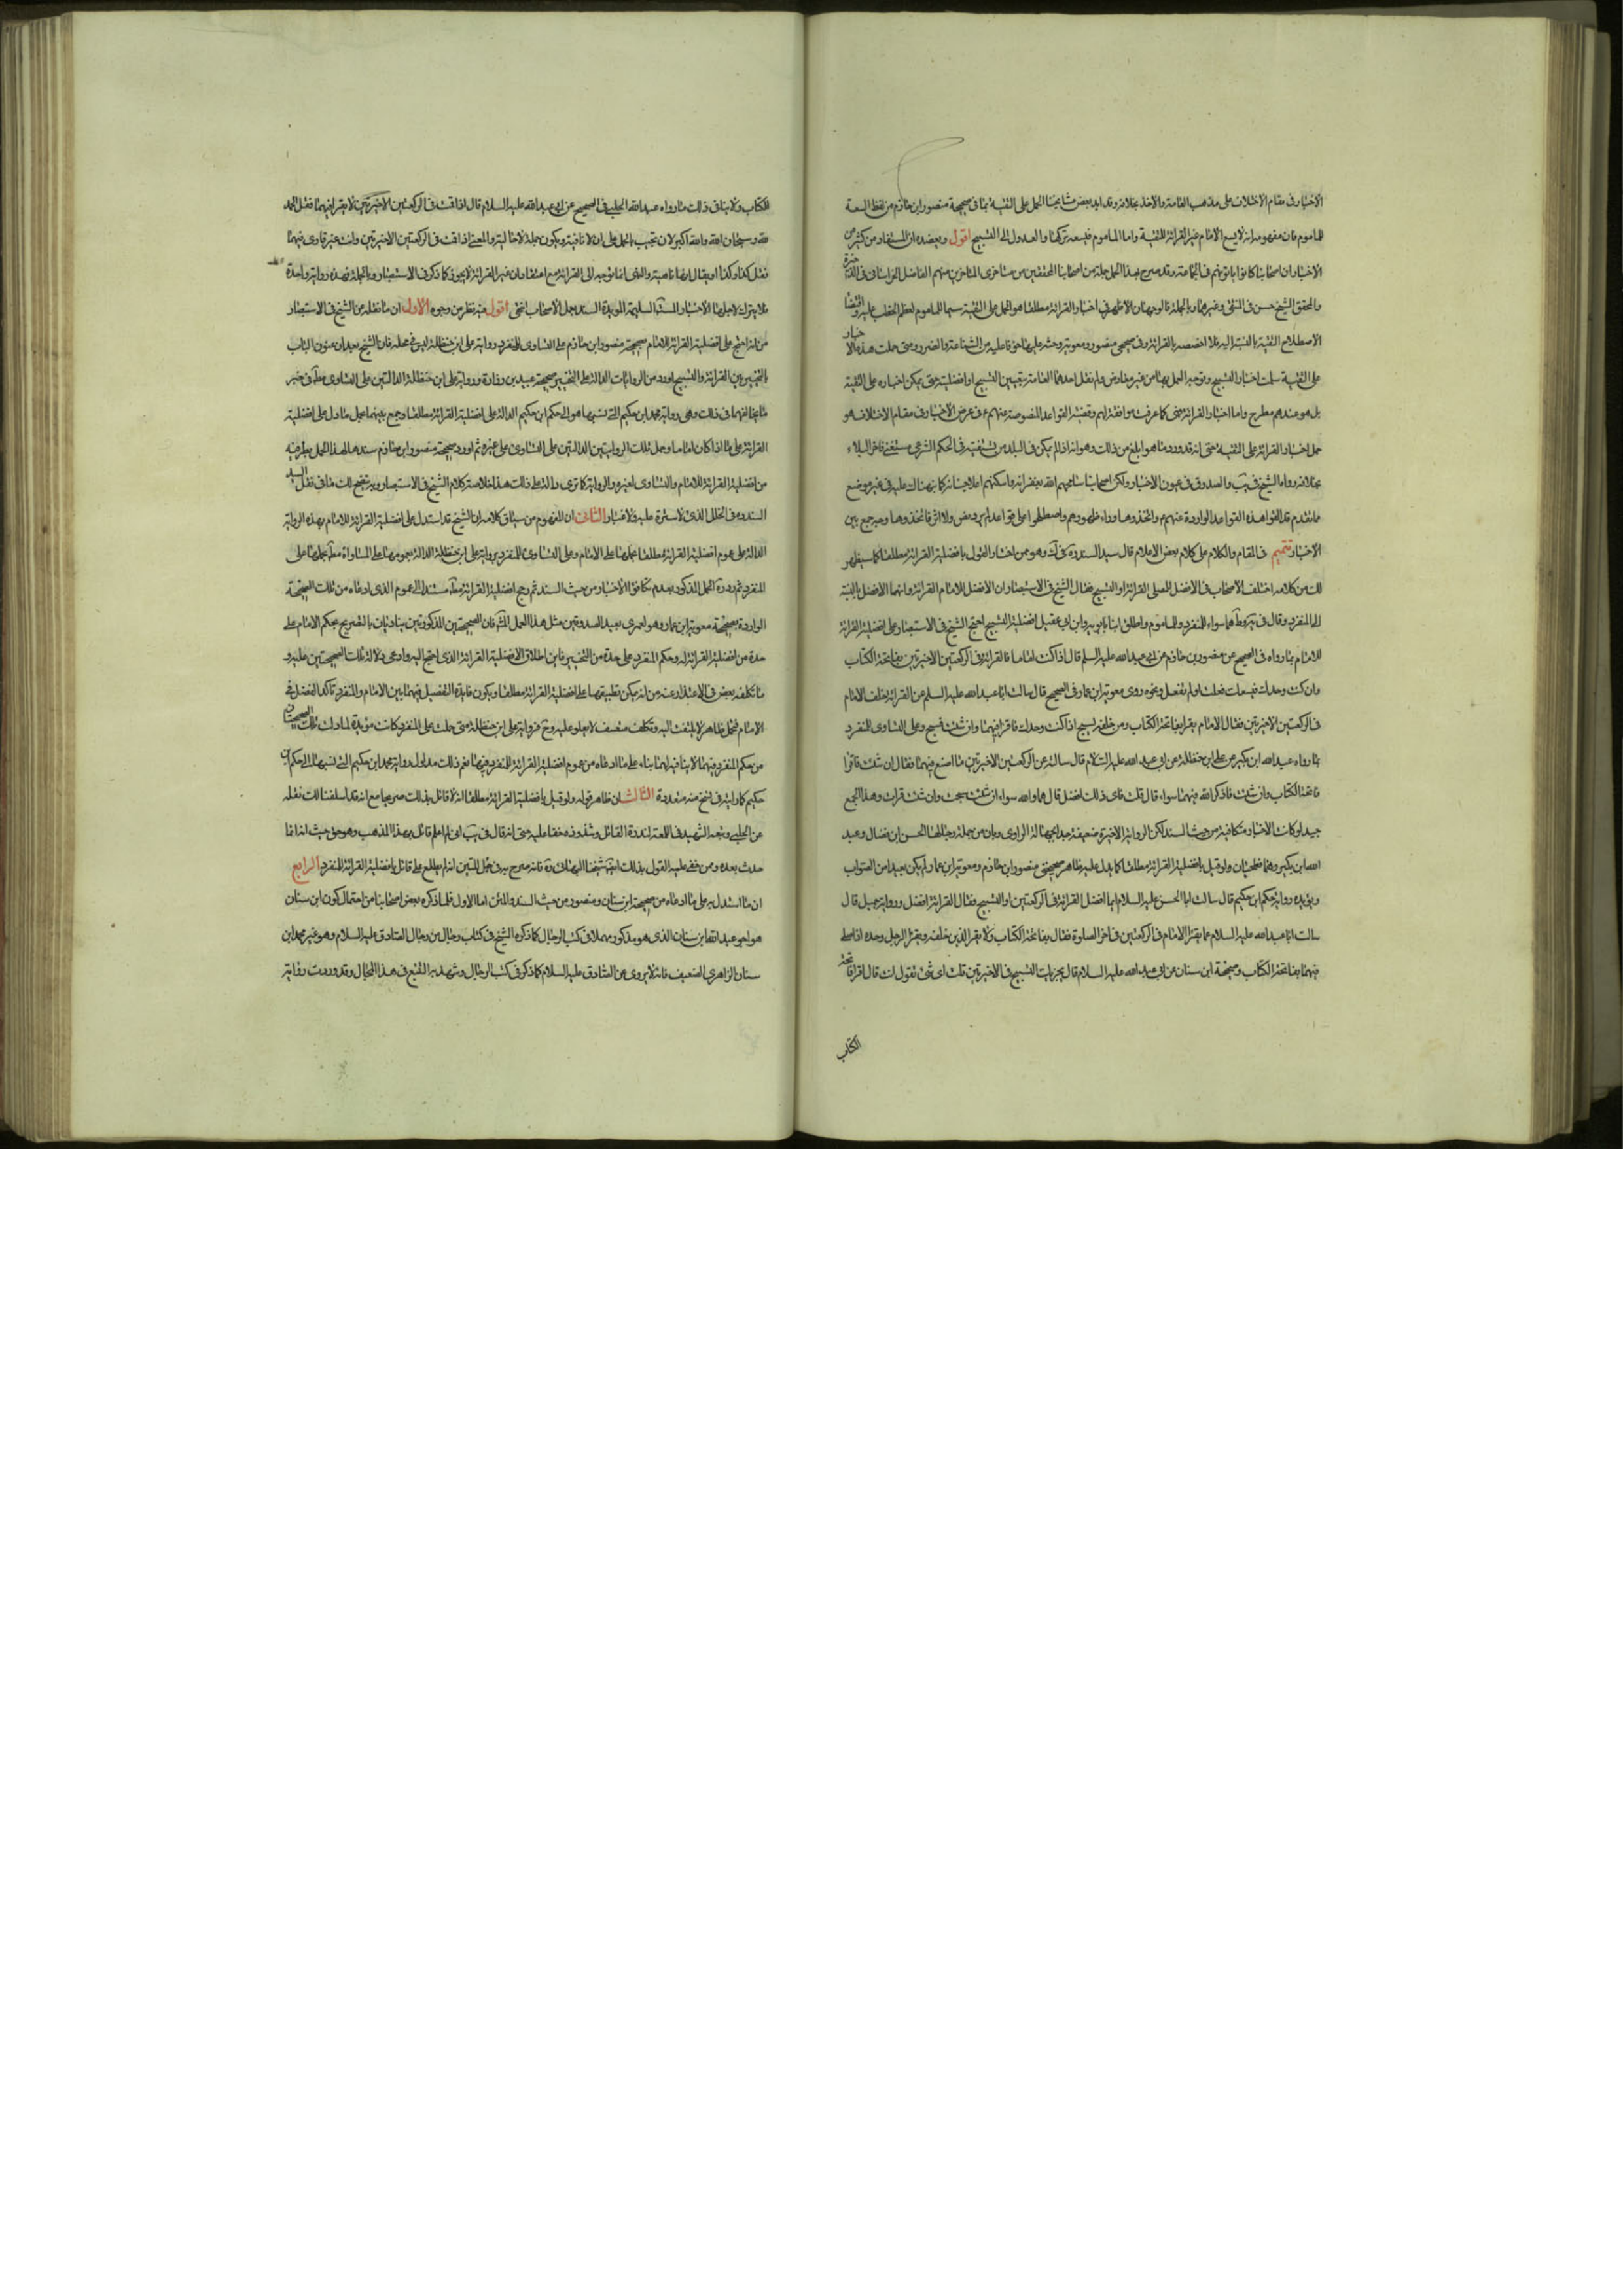 الاخبار فى مقام الاختلاف على مذهب العامة والاخذ بخلافه وقد ايد بعض مشايخنا الحمل على التقية بما فى صحيحة منصور ابن حازم من لفظ السعة
للماموم فان مفهومه انه لا يسع الامام غير القرائة للتقية واما الماموم فيسعه تركها والعدول الى التسبيح اقول ويعضده ان المستفاد من كثير من
الاخبار ان اصحابنا كانوا ياتونهم فى الجماعة وقد صرح بهذا الحمل جملة من اصحابنا المحققين من متاخرى المتاخرين منهم الفاضل الخراسانى فى الذخيرة
والمحقق الشيخ حسن فى المنتقى وغيرهما وبالجملة فالوجه ان الاظهر فى اخبار القرائة مطلقا هو الحمل على التقية سيما للماموم
على التقية سلمت اخبار التسبيح وتوجه العمل بها من غير معارض
بل هو عندهم مطرح واما اخبار القرائة فمتى كما عرفت موافقتها لهم وقضية القواعد المنصوصة عنهم ع فى عرض الاخبار فى مقام الاختلاف هو
حمل اخبار القرائة على التقية حتى انه قد ورد ما هو ابلغ من ذلك وهو انه اذا لم يكن فى البلد من تستفتيه فى الحكم الشرعى
بخلافه رواه الشيخ فى يب والصدوق فى عيون الاخبار ولكن اصحابنا سامحهم الله بغفرانه واسكنهم اعلا جنانه كما نبهناك عليه فى غير موضع
مما تقدم قد الغوا هذه القواعد الواردة عنهم ع واتخذوها وراء ظهورهم واصطلحوا على قواعد لم يرد بها نص ولا اثر فاتخذوها وجه جمع بين
الاخبار تتميم فى المقام والكلام على كلام بعض الاعلام قال سيد السند ره فى ك وهو ممن اختار القول بافضلية القرائة مطلقا كما سيظهر
لك من كلامه اختلف الاصحاب فى الافضل للمصلى القرائة او التسبيح فقال الشيخ فى الاستبصار ان الافضل للامام القرائة وانهما
الى المنفرد وقال فى يه وط هما سواء للمنفرد وللماموم واطلق ابنا بابويه وابن ابى عقيل افضلية التسبيح احتج الشيخ فى الاستبصار على افضلية القرائة
للامام بما رواه فى الصحيح عن منصور بن حازم عن ابى عبد الله عليه السلم قال اذا كنت اماما فاقرا فى الركعتين الاخيرتين بفاتحة الكتاب
وان كنت وحدك فيسعك فعلت او لم تفعل ونحوه روى معوية ابن عمار فى الصحيح قال سالت ابا عبد الله عليه السلم عن القرائة خلف الامام
فى الركعتين الاخيرتين فقال الامام يقرا بفاتحة الكتاب ومن خلفه يسبح اذا كنت وحدك فاقرا فيهما وان شئت فسبح وعلى التساوى للمنفرد
بما رواه عبد الله ابن بكير عن على ابن حنظلة عن ابى عبد الله عليه السلام قال سالته عن الركعتين الاخيرتين ما اصنع فيهما فقال ان شئت فاقرا
فاتحة الكتاب وان شئت فاذكر الله فيهما سواء قال قلت فاى ذلك افضل قال هما والله سواء ان شئت سبحت وان شئت قرات وهذا الجمع
جيد لو كانت الاخبار متكافئة من حيث السند لكن الرواية الاخيرة ضعيفة جدا بجهالة الراوى وبان من جملة رجالها الحسن ابن فضال وعبد
الله ابن بكير وهما فطحيان ولو قيل بافضلية القرائة مطلقا كما يدل عليه ظاهر صحيحتى منصور ابن حازم ومعوية ابن عمار لم يكن بعيدا من الصواب
ويؤيده رواية حكم ابن حكيم قال سالت ابا الحسن عليه السلام ايما افضل القرائة فى الركعتين او التسبيح فقال القرائة افضل ورواية جميل قال
سالت ابا عبد الله عليه السلام عما يقرا الامام فى الركعتين فى اخر الصلوة فقال بفاتحة الكتاب ولا يقرا الذين خلفه ويقرا الرجل وحده اذا صلى
فيهما بفاتحة الكتاب وصحيحة ابن سنان عن ابى عبد الله عليه السلام قال يجزيك التسبيح فى الاخيرتين قلت اى شئ تقول انت قال اقرا فاتحة
الكتاب
الكتاب ولا ينافى ذلك ما رواه عبيد الله الحلبى فى الصحيح عن ابى عبد الله عليه السلام قال اذا قمت فى الركعتين الاخيرتين لا تقرا فيهما فقل الحمد
لله وسبحان الله والله اكبر لانا نجيب بالحمل على ان لا نافية ويكون جملة لا تقرا حالية والمعنى اذا قمت فى الركعتين الاخيرتين وانت غير قارى فيهما
فقل كذا وكذا او يقال انها ناهية والنهى انما توجه الى القرائة مع اعتقاد ان غير القرائة لا يجوز كما ذكره فى الاستبصار وبالجملة فهذه رواية واحدة
فلا يترك لاجلها الاخبار السليمة المؤيدة السند بعمل الاصحاب انتهى اقول فيه نظر من وجوه الاول ان ما نقله عن الشيخ فى الاستبصار
من انه احتج على افضلية القرائة للامام بصحيحة منصور ابن حازم وعلى التساوى للمنفرد برواية على ابن حنظلة ليس فى محله فان الشيخ بعد ان عنون الباب
بالتخيير بين القرائة والتسبيح اورد من الروايات الدالة على التخيير صحيحة عبيد بن زرارة ورواية على ابن حنظلة الدالتين على التساوى مطلقا ثم ذكر خبر
ما يخالفهما فى ذلك وهى رواية محمد ابن حكيم التى نسبها هو الى حكم ابن حكيم الدالة على افضلية القرائة مطلقا وجمع بينهما بحمل ما دل على افضلية
القرائة على ما اذا كان اماما وحمل تلك الروايتين الدالتين على التساوى على غيره ثم اورد صحيحة منصور ابن حازم سندا لهذا الحمل بطرفيه
من افضلية القرائة للامام والتساوى لغيره والرواية كما ترى دالة على ذلك هذا خلاصة كلام الشيخ فى الاستبصار وبه يتضح لك ما فى نقل السيد
السند ره من الخلل الذى لا سترة عليه ولا غبار الثانى ان المفهوم من سياق كلامه ان الشيخ قد استدل على افضلية القرائة للامام بهذه الرواية
الدالة على عموم افضلية القرائة مطلقا بحملها على الامام وعلى التساوى للمنفرد برواية على ابن حنظلة الدالة بعمومها على المساواة مطلقا بحملها على
المنفرد ثم رد ره الحمل المذكور بعدم تكافؤ الاخبار من حيث السند ثم رجح افضلية القرائة مطلقا مستندا الى العموم الذى ادعاه من تلك الصحيحة
الواردة بصحيحة معوية ابن عمار وهو لعمرى بعيد الصدور عن مثل هذا العمل المشار فان الصحيحتين المذكورتين يناديان بالتصريح بحكم الامام على
حدة من افضلية القرائة له وحكم المنفرد على حدة من التخيير فاين اطلاق الافضلية القرائة الذى احتج اليه وادعى دلالة تلك الصحيحتين عليه و
ما تكلفه بعض فى الاعتذار عنه من انه يمكن تطبيقها على افضلية القرائة مطلقا ويكون فائدة التفصيل فيهما بين الامام والمنفرد تاكد الفضل فى
الامام فتحمل ظاهر لا يلتفت اليه وتكلف متعسف لا يعلو عليه وح فرواية على ابن حنظلة متى حملت على المنفرد كانت مؤيدة لما دلت تلك الصحيحتان
من حكم المنفرد فيهما لا منافية لهما بناء على ما ادعاه من عموم افضلية القرائة للمنفرد فيهما نعم ذلك مدلول رواية محمد ابن حكيم التى نسبها الى حكم ابن
حكيم كما رايته فى نسخ متعددة الثالث ان ظاهر قوله ولو قيل بافضلية القرائة مطلقا انه لا قائل بذلك صريحا مع انه قد اسلفنا لك نقله
عن الحلبى ونبه الشهيد فى اللمعة لندرة القائل وشذوذه خفى عليه حتى انه قال فى يب انى لم اعلم قائل بهذا المذهب وهو حق حيث انه انما
حدث بعده وممن خفى عليه القول بذلك ايضا شيخنا البهائى ره فانه صرح به فى حبل المتين انه لم يطلع على قائل بافضلية القرائة للمنفرد الرابع
ان ما استدل به على ما ادعاه من صحيحة ابن سنان ومنصور من حيث السند والمتن اما الاول فلما ذكره بعض اصحابنا من احتمال كون ابن سنان
هو اخو عبد الله ابن سنان الذى هو مذكور مهملا فى كتب الرجال كما ذكره الشيخ فى كتاب رجال من رجال الصادق عليه السلام وهو غير محمد ابن
سنان الزاهرى الضعيف فانه لا يروى عن الصادق عليه السلام كما ذكر فى كتب الرجال وشهد به التتبع فى هذا المجال وقد وردت رواية